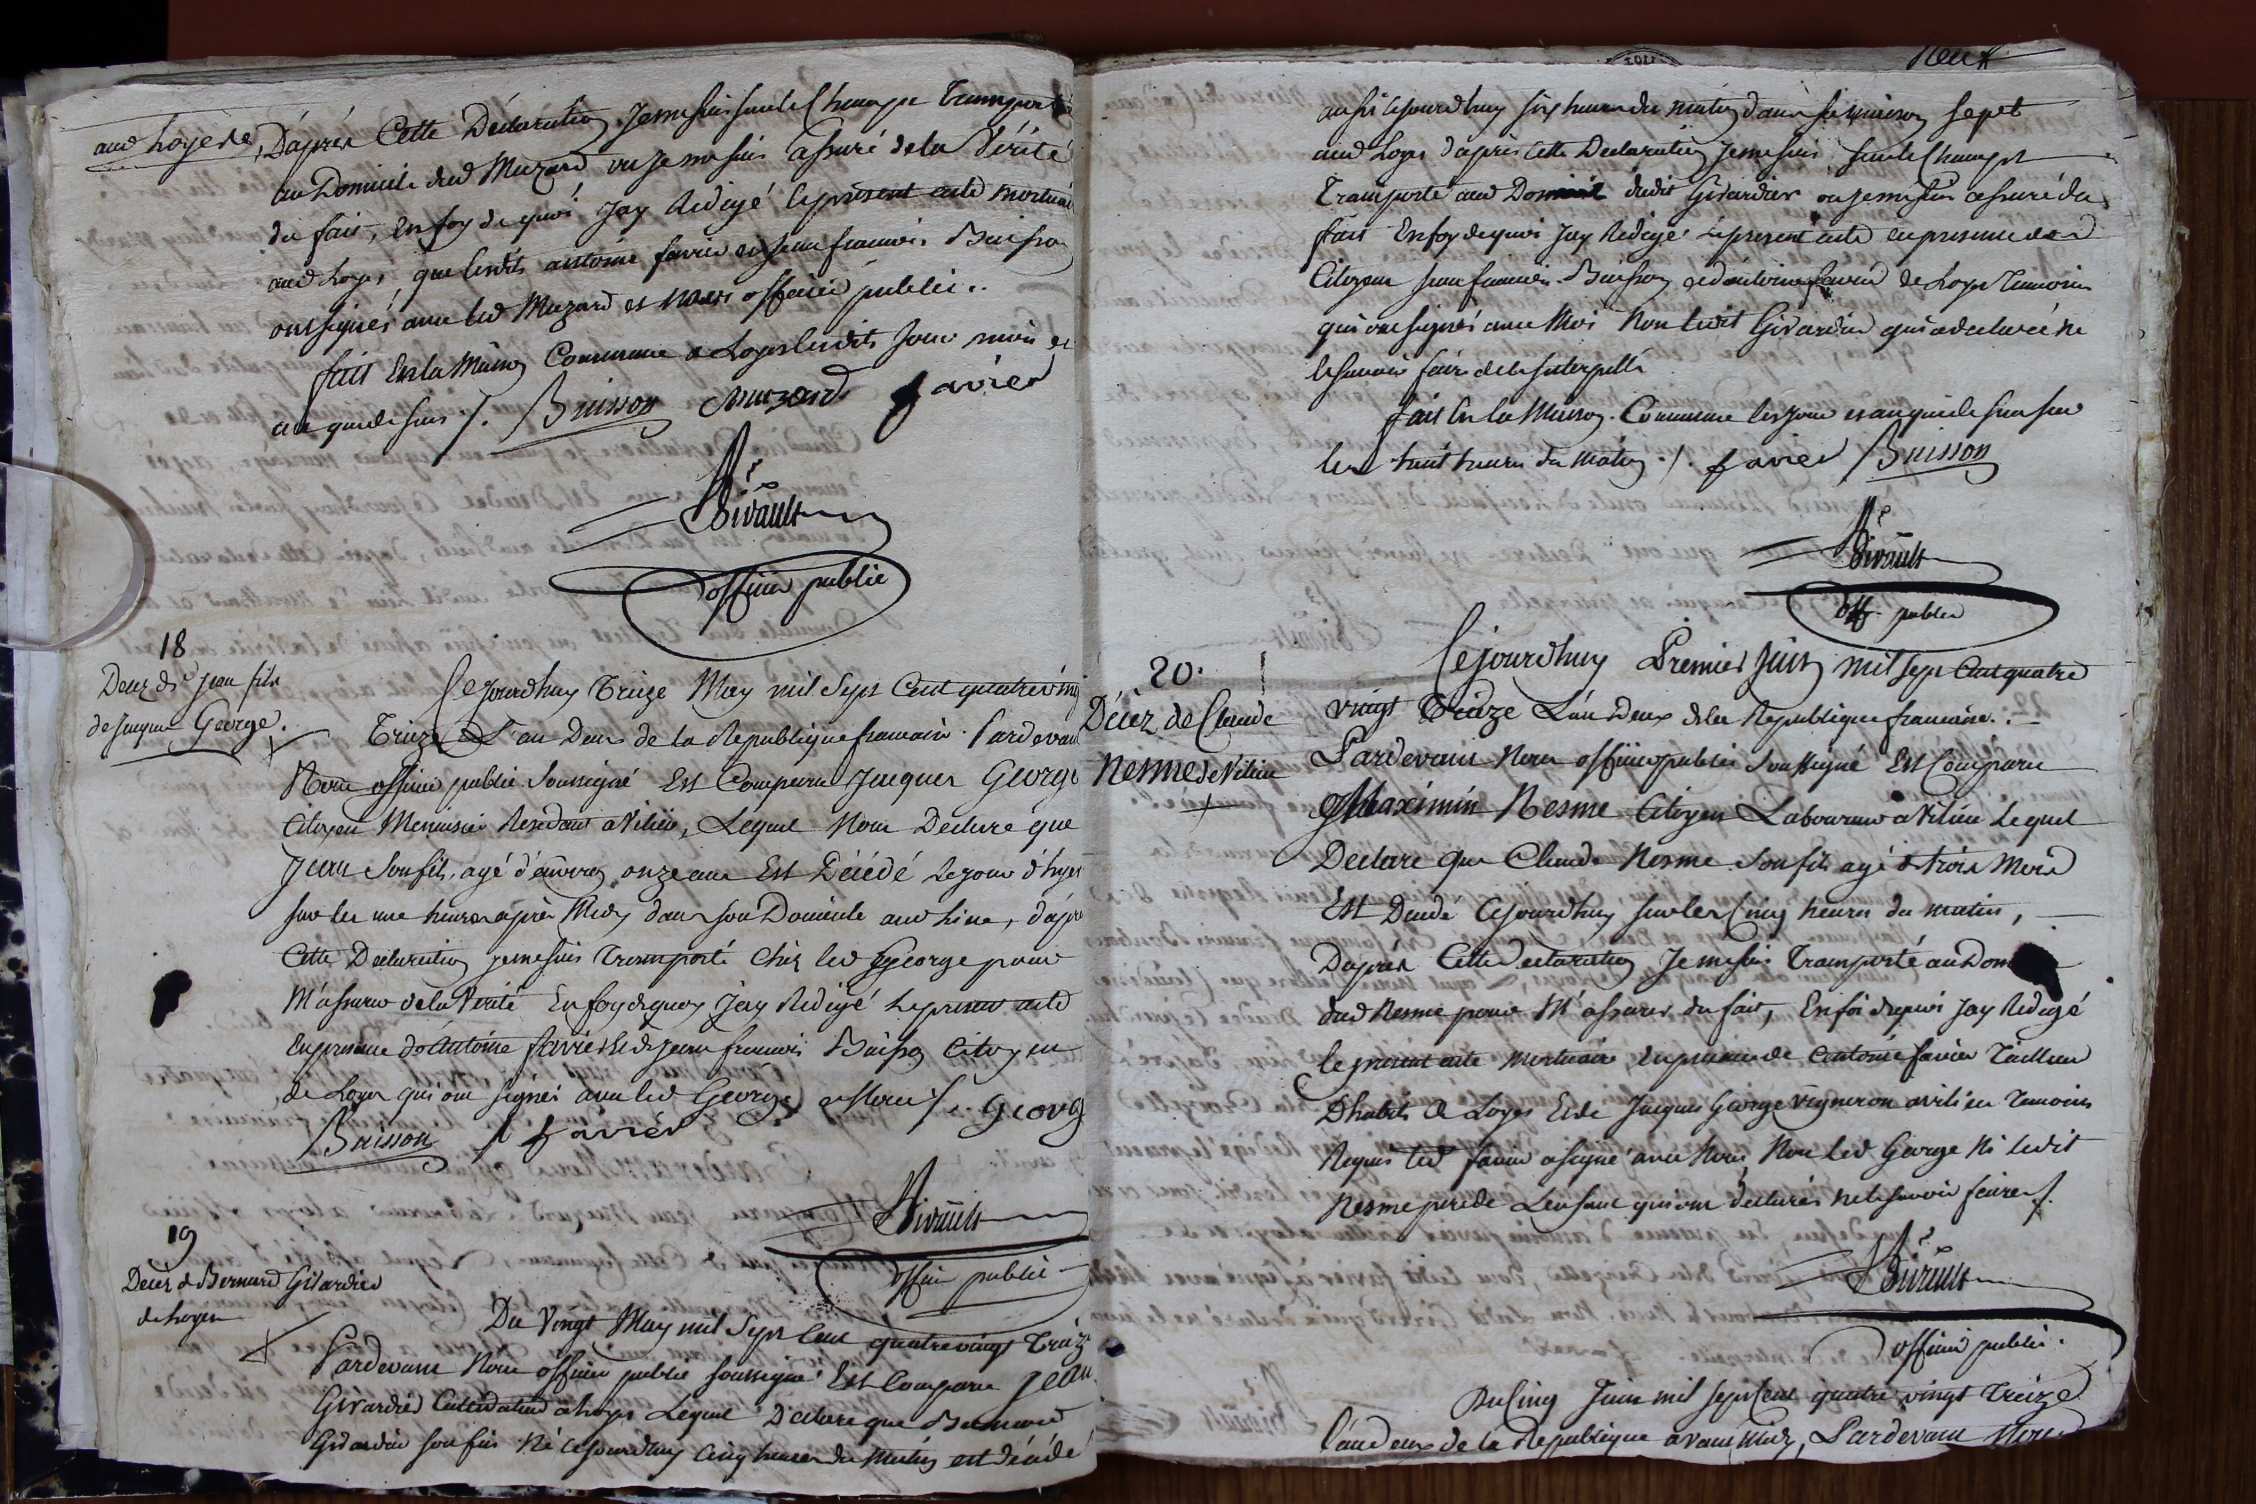 aud Loyes, D'après Cette Déclaration Jemesuis surle Champ Transporté
au Domicile dud Muzard ou Je me suis assuré de la Vérité
du fait, En foy de quoi Jay Redigé le présent acte mortuai
aud Loyes, que lesdits antoine favier et jean francois Buisson
ont signés avec led Muzard et nous officier public..
fait En la Maison Commune de Loyes lesdits Jour mois et
an que de sus /. Buisson Muzard favier
Sivault
officier public
18
Décez de Jean fils
de Jacques George.
Cejourdhuy Treize May mil Sept Cent quatrevingt
Treize L'an Deux de la Republique francaise. Pardevant
Nous officier public Soussigné Est Comparu Jacques George
Citoyen Menuisier Residant a Vilieu, Lequel Nous Declare que
Jean Son fils, agé d'environ onze ans Est Décédé Le jour d'hyer
sur les une heures après Midy dans son Domicile aud Lieu, d'après
Cette Declaration jemesuis Transporté Chez led George pour
M'assurer de la Verité En foy de quoy Jay Redigé Le present acte
En presence d'Antoine favier et de jean francois Buisson Citoyens
de Loyes qui ont signés avec led George et Nous /. George
Buisson favier
Sivault
officier public
19
Décès de Bernard Girardier
de Loyes
Du Vingt May mil Sept Cent quatrevingt Treize
Pardevant Nous officier public soussigné Est Comparu Jean
Girardier Cultivateur a Loyes Lequel Déclare que Bernard
Girardier son fils Né Cejourdhuy Cinq heures du Matin est décédé
aussi Cejourdhuy six heures du matin dans sa maison
aud Loyes d'après Cette Declaration Jemesuis surle Champ
Transporté aud Domicile dudit Girardier ou jemesuis assuré du
fait En foy de quoi Jay Redigé le present acte en presence des
Citoyens jean francois Buisson et d'antoine favier de Loyes Temoins
qui ont signés avec Moi Non ledit Girardier qui a declaré ne
le savoir faire de le Interpellé
fait En la Maison Commune les jour et an que de sus sur
les huit heures du Matin /. favier Buisson
Sivault
off. public
20.
Décez de Claude
Nesme de Vilieu
Cejourdhuy Premier Juin mil sept Cent quatre
vingt Treize L'an Deux de la Republique francaise..
Pardevant Nous officier public Soussigné Est Comparu
Maximin Nesme Citoyen Laboureur a Vilieu Lequel
Declare que Claude Nesme Son fils agé de trois Mois
Est Décédé Cejourdhuy sur les Cinq heures du matin,
Daprès Cette Declaration Je me suis Transporté au
dud Nesme pour M'assurer du fait, En foi de quoi Jay Redigé
le present acte Mortuaire, en presence de antoine favier Tailleur
Dhabits de Loyes Et de Jacques George vigneron a vilieu Temoins
Requis led favier a signé avec Nous, Non led George Ni ledit
Nesme pere de L'enfant qui ont déclarés ne le savoir faire /.
Sivault
officier public.
Du Cinq Juin mil sept Cent quatre vingt Treize
L'an deux de la Republique avant Midy, Pardevant Nous